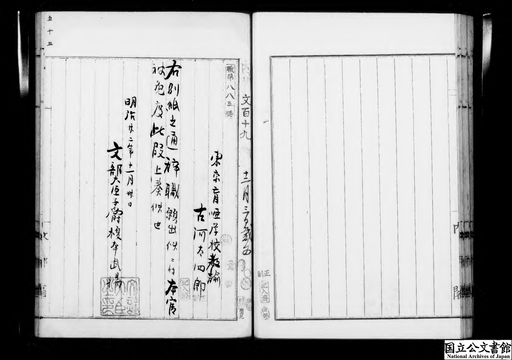 文百十九
職第八八五号
東京盲唖学校教諭
古河太四郎
右別紙之通辞職願出候ニ付本官
被免度此段上奏候也
明治廿二年十一月卅日
文部大臣子爵榎本武揚
国立公文書館
National Archives of Japan